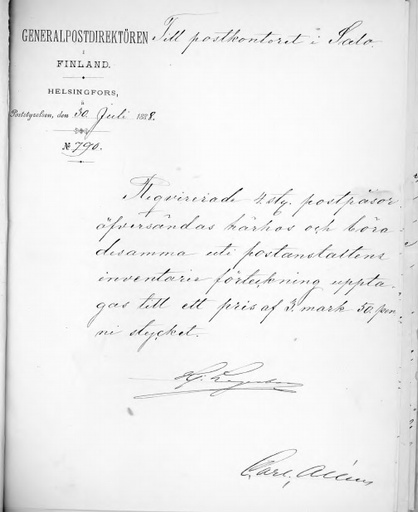 GENERALPOSTDIREKTÖREN
i
FINLAND.
HELSINGFORS,
å
Poststyrelsen, den 30 Juli 1888.
№ 790.
Till postkontoret i Salo.
Reqvirerade 4 st. postpåsar
äfversändas härhos och böra
desamma uti postanstaltens
inventarie förteckning uppta-
gas till ett pris af 3 mark 50 pen-
ni stycket.
Carl